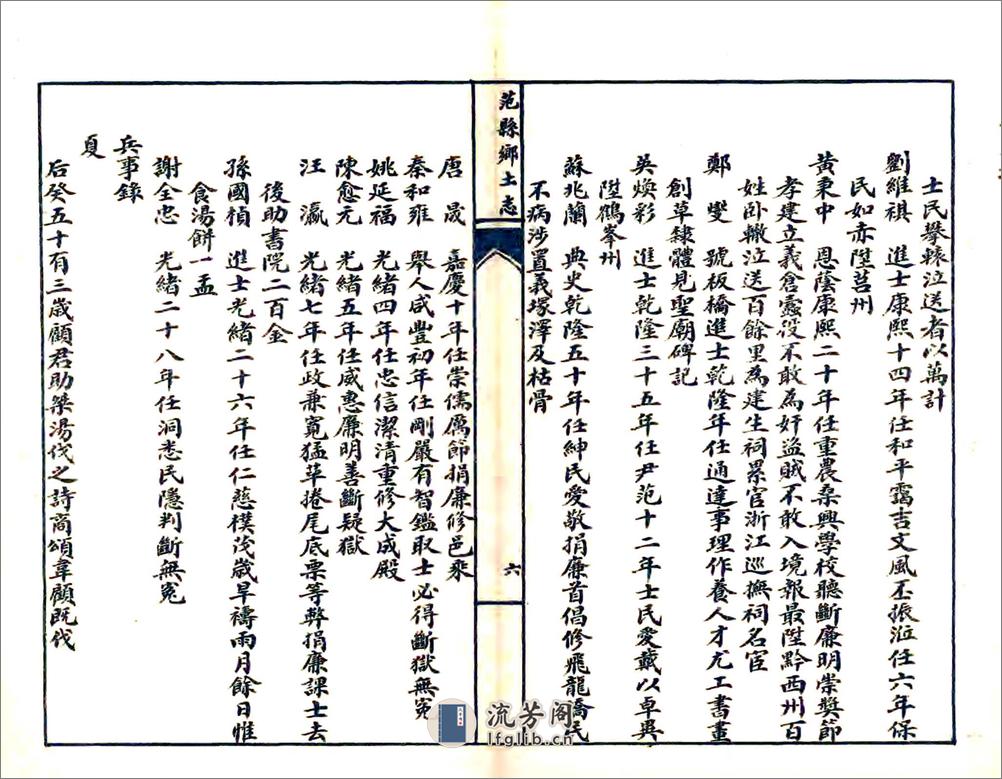 士民攀轅泣送者以萬計
劉維祺　進士康熙十四年任和平靄吉文風丕振涖任六年保
民如赤陞莒州
黃秉中　恩蔭康熙二十年任重農桑興學校聽斷廉明崇獎節
孝建立義倉蠹役不敢為奸盜賊不敢入境報最陞黔西州百
姓卧轍泣送百餘里為建生祠累官浙江巡撫祠名宦
鄭　燮　號板橋進士乾隆年任通達事理作養人才尤工書畫
創草隸體見聖廟碑記
吳煥彩　進士乾隆三十五年任尹范十二年士民愛戴以卓異
陞鶴峯州
蘇兆蘭　典史乾隆五十年任紳民愛敬捐廉首倡修飛龍橋民
不病涉置義塚澤及枯骨
范縣鄉土志
六
唐　晟　嘉慶十年任崇儒厲節捐廉修邑乘
秦和雍　舉人咸豐初年任剛嚴有智鑑取士必得斷獄無冤
姚延福　光緒四年任忠信潔清重修大成殿
陳愈元　光緒五年任威惠廉明善斷疑獄
汪　瀛　光緒七年任政兼寬猛革捲尾底票等弊捐廉課士去
後助書院二百金
孫國楨　進士光緒二十六年任仁慈樸茂歲旱禱雨月餘日惟
食湯餅一盂
謝全忠　光緒二十八年任洞悉民隱判斷無冤
兵事錄
夏
后癸五十有三歲顧君助桀湯伐之詩商頌韋顧既伐
流芳阁
lfglib.cn